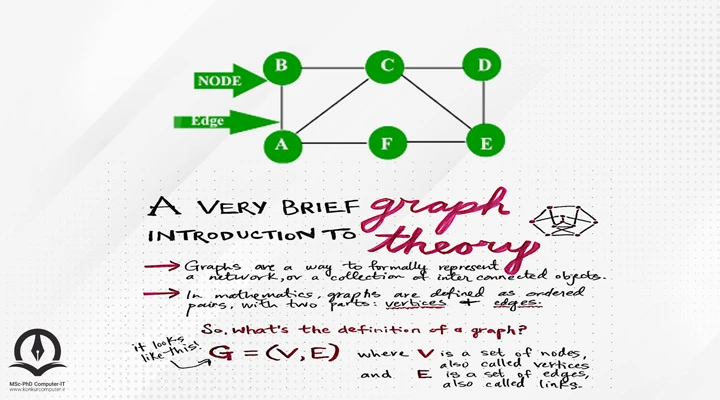 B C D
NODE
Edge
A F E
A VERY BRIEF graph
INTRODUCTION TO theory
Graphs are a way to formally represent
a network, or a collection of interconnected objects.
In mathematics, graphs are defined as ordered
pairs, with two parts: vertices + edges.
So, what's the definition of a graph?
it looks
like this!
G = (V, E) where V is a set of nodes,
also called vertices
and E is a set of edges,
also called links.
MSc-PhD Computer-IT
www.konkurcomputer.ir